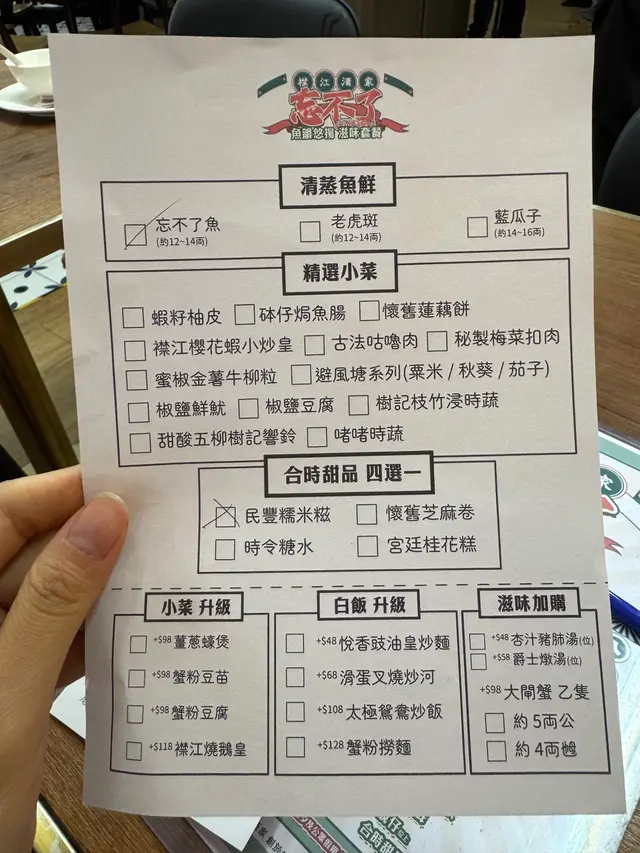 襟江酒家
忘不了
魚韻悠揚 滋味套餐
清蒸魚鮮
忘不了魚 老虎斑 藍瓜子
(約12~14両) (約12~14両) (約14~16両)
精選小菜
蝦籽柚皮 砵仔焗魚腸 懷舊蓮藕餅
襟江櫻花蝦小炒皇 古法咕嚕肉 秘製梅菜扣肉
蜜椒金薯牛柳粒 避風塘系列(粟米 / 秋葵 / 茄子)
椒鹽鮮魷 椒鹽豆腐 樹記枝竹浸時蔬
甜酸五柳樹記響鈴 啫啫時蔬
合時甜品 四選一
民豐糯米糍 懷舊芝麻卷
時令糖水 宮廷桂花糕
小菜 升級
+$98 薑蔥蠔煲
+$98 蟹粉豆苗
+$98 蟹粉豆腐
+$118 襟江燒鵝皇
白飯 升級
+$48 悅香豉油皇炒麵
+$68 滑蛋叉燒炒河
+$108 太極鴛鴦炒飯
+$128 蟹粉撈麵
滋味加購
+$48 杏汁豬肺湯(位)
+$58 爵士燉湯(位)
+$98 大閘蟹 乙隻
約 5両公
約 4両乸